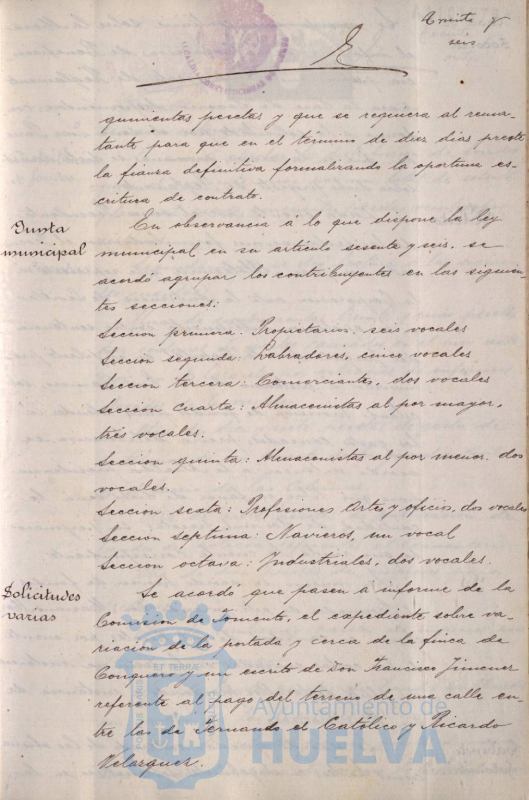 Treinta y
seis
quinientas pesetas y que se requiera al rema-
tante para que en el término de diez dias preste
la fianza definitiva formalizando la oportuna es-
critura de contrato.
Junta
municipal
En observancia á lo que dispone la ley
municipal en su artículo sesenta y seis, se
acordó agrupar los contribuyentes en las siguien-
tes secciones:
Seccion primera. Propietarios, seis vocales
Seccion segunda: Labradores, cinco vocales
Seccion tercera: Comerciantes, dos vocales
Seccion cuarta: Almacenistas al por mayor,
tres vocales.
Seccion quinta: Almacenistas al por menor. dos
vocales.
Seccion sexta: Profesiones Artes y oficios, dos vocales
Seccion septima: Navieros, un vocal
Seccion octava: Industriales, dos vocales.
Solicitudes
varias
Se acordó que pasen á informe de la
Comision de Fomento, el expediente sobre va-
riacion de la portada y cerca de la finca de
Conquero y un escrito de Don Francisco Jimenez
referente al pago del terreno de una calle en-
tre las de Fernando el Católico y Ricardo
Velazquez.
Ayuntamiento de
HUELVA